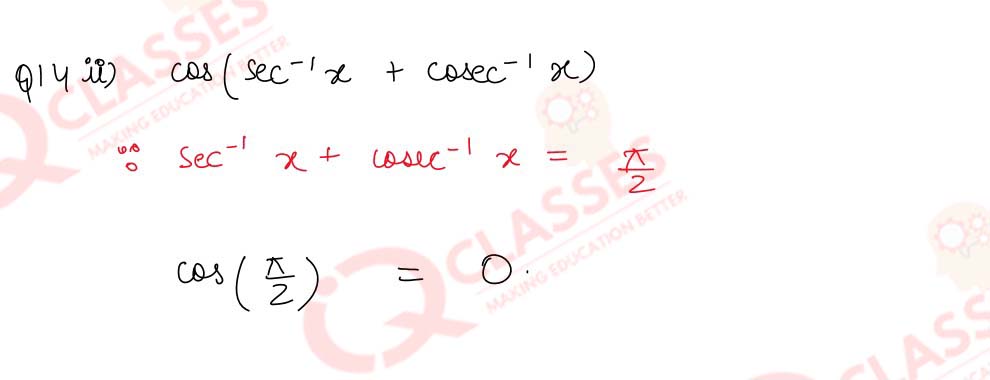 Q14 ii) cos(sec⁻¹x + cosec⁻¹ x)
∵ sec⁻¹ x + cosec⁻¹ x = π/2
cos(π/2) = 0.
CLASSES
MAKING EDUCATION BETTER
IQ CLASSES
MAKING EDUCATION BETTER
CLASSES